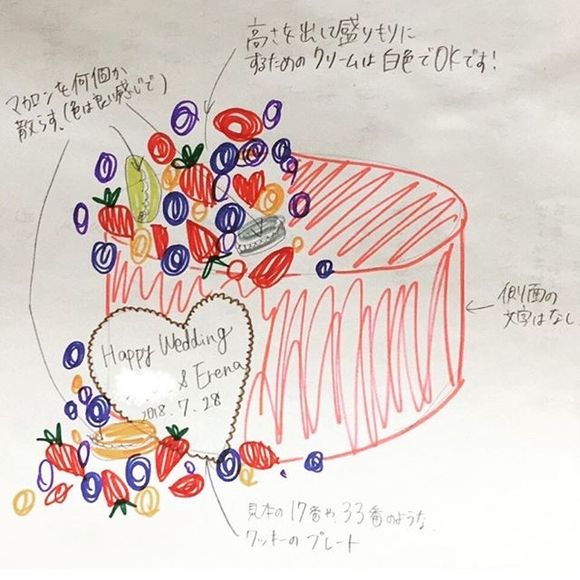 高さを出して盛りもりに
するためのクリームは白色でOKです!
マカロンを何個か
散らす。(色は良い感じで)
側面の
文字はなし
Happy Wedding
& Erena
2018.7.28
見本の17番や33番のような
クッキーのプレート